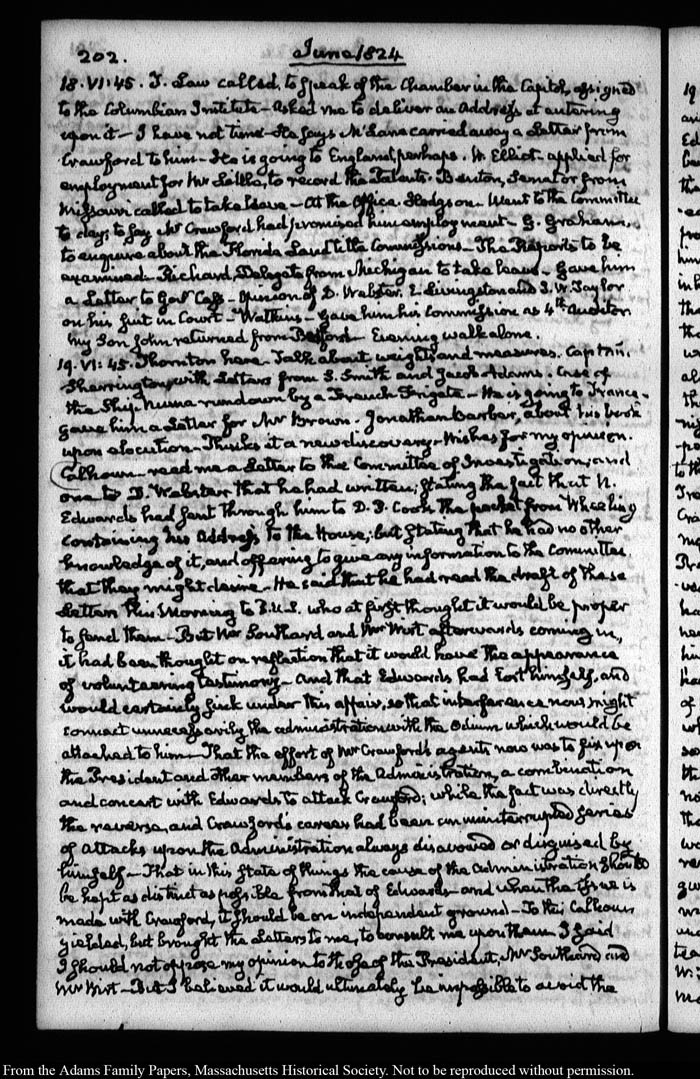 202.
June 1824
18. VI:45. T. Law called, to speak of the Chamber in the Capitol, assigned
to the Columbian Institute — Asked me to deliver an Address at entering
upon it — I have not time — He says McLane carried away a Letter from
Crawford to him — He is going to England, perhaps. W. Elliot — applied for
employment for Mr Little, to record the Patents. Benton, Senator from
Missouri called to take leave — At the Office. Hodgson — Went to the Committee
to day; to say Mr Crawford had promised him employment — G. Graham,
to enquire about the Florida Land title Commissions — The Reports to be
examined — Richard, Delegate from Michigan to take leave — Gave him
a Letter to Govr Cass — Opinion of D. Webster, E. Livingston and J. W. Taylor
on his suit in Court — Watkins — Gave him his Commission as 4th Auditor
My Son John returned from Evening walk alone.
19. VI:45. Thornton here — Talk about weights and measures. Captn.
Sherrington, with Letters from S. Smith and Jacob Adams. Case of
the Ship run down by a French Frigate — He is going to France —
gave him a Letter for Mr Brown. Jonathan Barber, about his book
upon elocution — Thinks it a new discovery — Wishes for my opinion.
Calhoun — read me a Letter to the Committee of Investigation, and
one to D. Webster that he had written; stating the fact that N.
Edwards had sent through him to D. P. Cook the packet from Wheeling
containing his Address to the House; but stating that he had no other
knowledge of it, and offering to give any information to the Committee
that they might desire. He said that he had read the draft of these
Letters this Morning to P.U.S. who at first thought it would be proper
to send them — But Mr Southard and Mr Wirt afterwards coming in,
it had been thought on reflection that it would have the appearance
of volunteering testimony — and that Edwards had lost himself, and
would certainly sink under this affair, so that interference now might
connect unnecessarily the administration with the odium which would be
attached to him — That the effort of Mr Crawford's agents now was to fix upon
the President and other members of the Administration, a combination
and concert with Edwards to attack Crawford; while the fact was directly
the reverse, and Crawford's career had been an uninterrupted series
of attacks upon the Administration always disavowed or disguised by
himself — That in this state of things the cause of the administration should
be kept as distinct as possible from that of Edwards — and when the issue is
made with Crawford, it should be on independent ground — To this Calhoun
yielded, but brought the Letters to me, to consult me upon them. I said
I should not oppose my opinion to those of the President, Mr Southard and
Mr Wirt — But I believed it would ultimately be impossible to avoid the
From the Adams Family Papers, Massachusetts Historical Society. Not to be reproduced without permission.